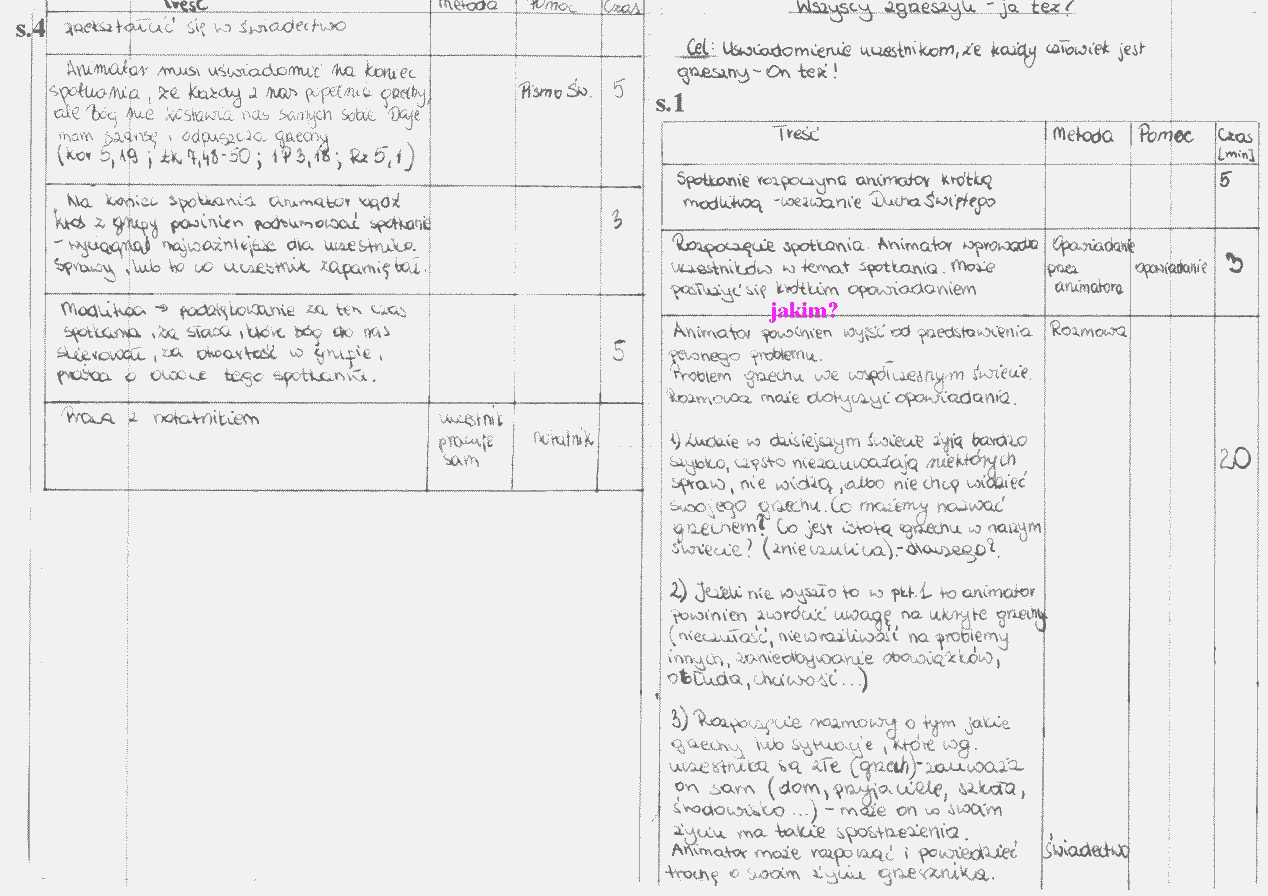 Treść Metoda Pomoc Czas
s.4 przekształcić się w świadectwo
Animator musi uświadomić na koniec
spotkania, że każdy z nas popełnia grzechy,
ale Bóg nie zostawia nas samych sobie. Daje
nam szansę i odpuszcza grzechy
(Kor 5,19 ; Łk 7,48-50 ; 1P 3,18 ; Rz 5,1)
Pismo Św.
5
Na koniec spotkania animator bądź
ktoś z grupy powinien podsumować spotkanie
- wyciągnąć najważniejsze dla uczestnika
sprawy, lub to co uczestnik zapamiętał.
3
Modlitwa → podziękowanie za ten czas
spotkania, za słowa, które Bóg do nas
skierował, za otwartość w grupie,
prośba o owoce tego spotkania.
5
Praca z notatnikiem
uczestnik
pracuje
sam
notatnik
Wszyscy zgrzeszyli - ja też?
Cel: Uświadomienie uczestnikom, że każdy człowiek jest
grzeszny - On też!
s.1
Treść Metoda Pomoc Czas
[min]
Spotkanie rozpoczyna animator krótką
modlitwą - wezwanie Ducha Świętego
5
Rozpoczęcie spotkania. Animator wprowadza
uczestników w temat spotkania. Może
posłużyć się krótkim opowiadaniem
jakim?
Opowiadanie
przez
animatora
opowiadanie
3
Animator powinien wyjść od przedstawienia
pewnego problemu.
Problem grzechu we współczesnym świecie.
Rozmowa może dotyczyć opowiadania.
Rozmowa
1) Ludzie w dzisiejszym świecie żyją bardzo
szybko, często niezauważają niektórych
spraw, nie widzą, albo nie chcą widzieć
swojego grzechu. Co możemy nazwać
grzechem? Co jest istotą grzechu w naszym
świecie? (znieczulica) - dlaczego?
20
2) Jeżeli nie wyszło to w pkt.1 to animator
powinien zwrócić uwagę na ukryte grzechy
(nieczułość, niewrażliwość na problemy
innych, zaniedbywanie obowiązków,
obłuda, chciwość...)
3) Rozpoczęcie rozmowy o tym jakie
grzechy lub sytuacje, które wg.
uczestnika są złe (grzech) - zauważa
on sam (dom, przyjaciele, szkoła,
środowisko ...) - może on w swoim
życiu ma takie spostrzeżenia.
Animator może rozpocząć i powiedzieć
trochę o swoim życiu grzesznika.
świadectwo